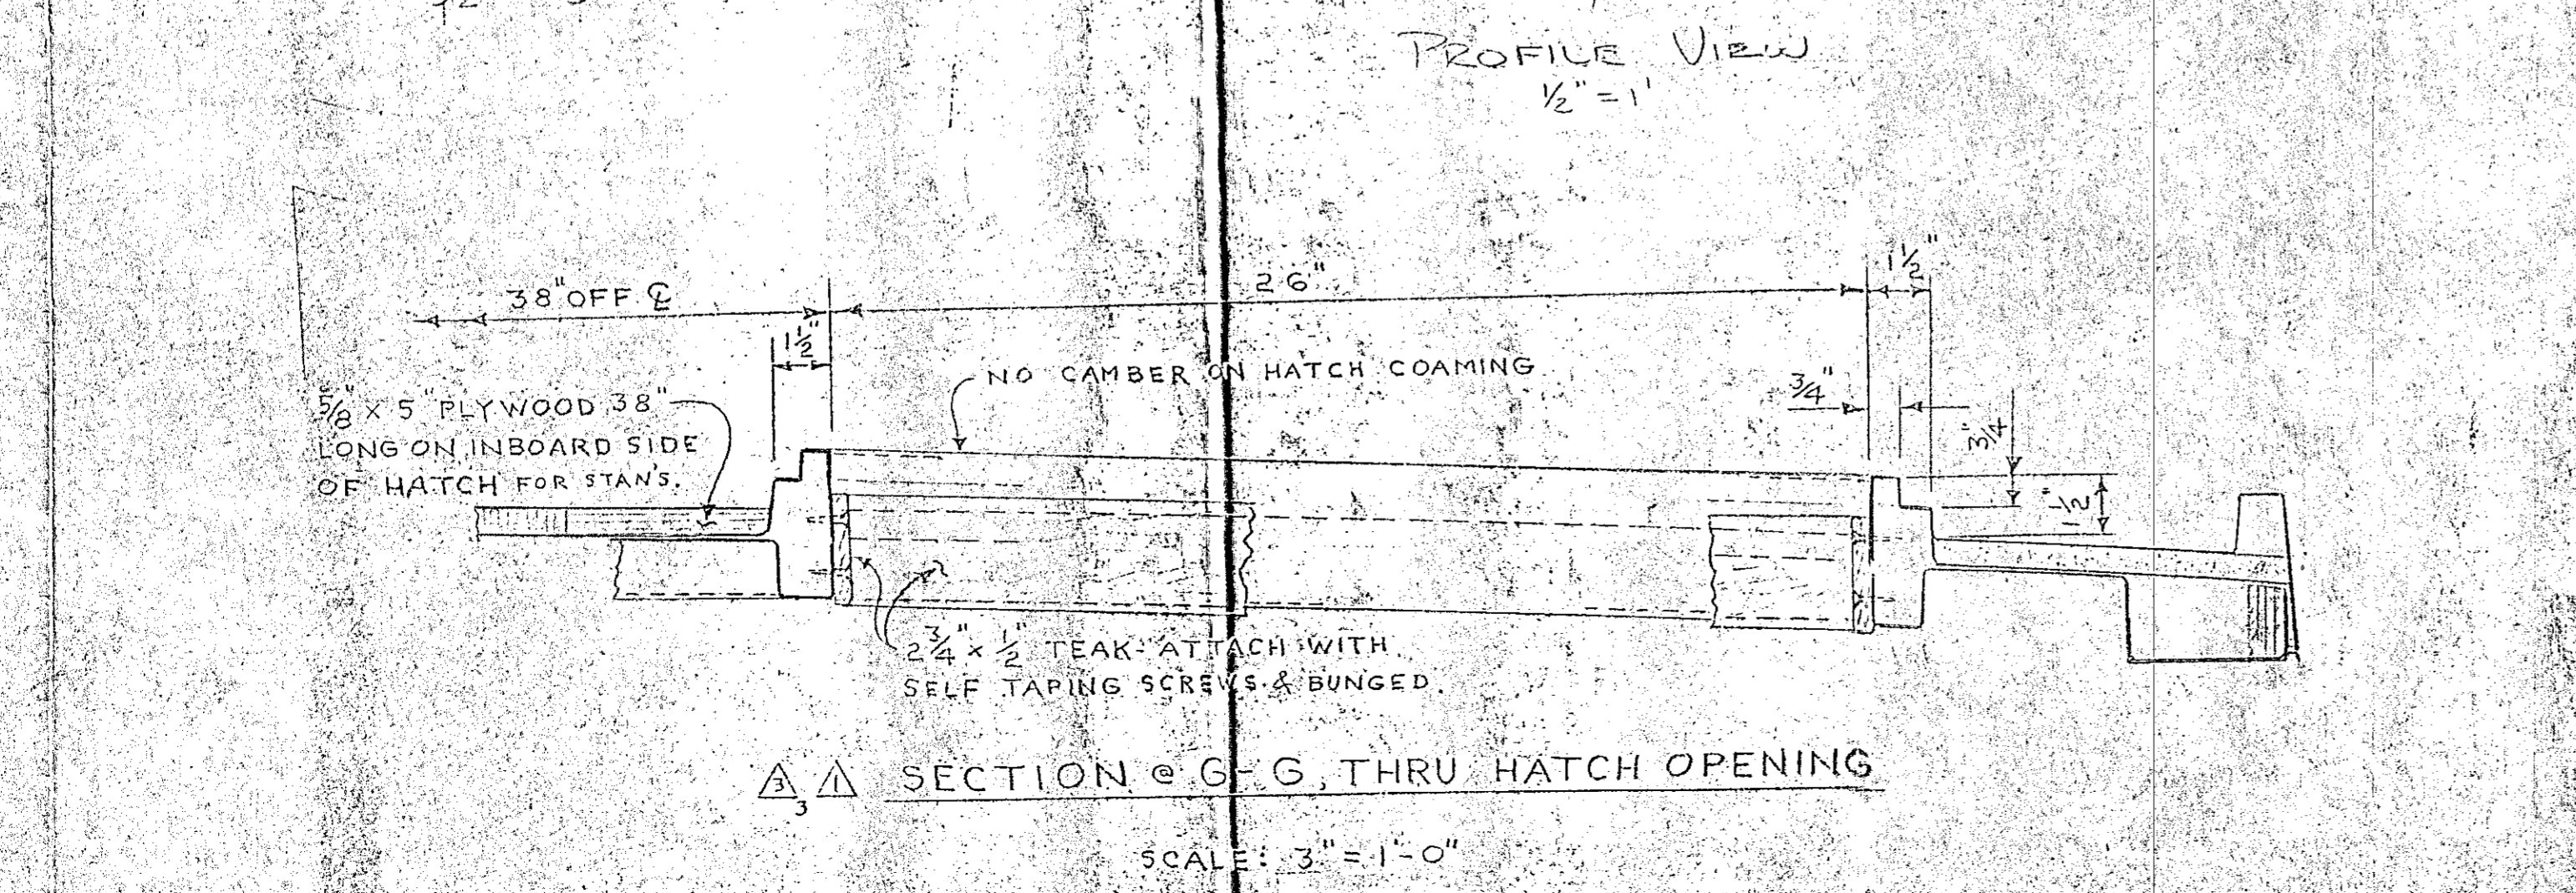 PROFILE VIEW
1/2" = 1'
38" OFF ℄
26"
1 1/2"
1 1/2"
NO CAMBER ON HATCH COAMING
3/4"
3/4"
1 1/2"
5/8" X 5" PLYWOOD 38"
LONG ON INBOARD SIDE
OF HATCH FOR STAN'S.
2 3/4" x 1/2" TEAK - ATTACH WITH
SELF TAPING SCREWS & BUNGED.
3 3 1 SECTION @ G-G, THRU HATCH OPENING
SCALE: 3" = 1'-0"